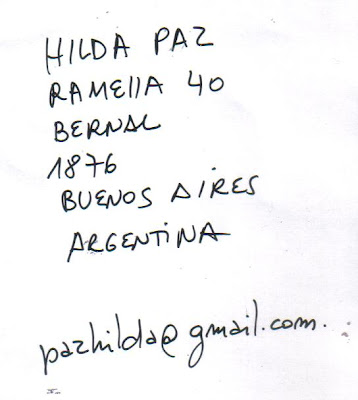 HILDA PAZ
RAMEllA 40
BERNAL
1876
BUENOS AIRES
ARGENTINA
pazhilda@gmail.com.